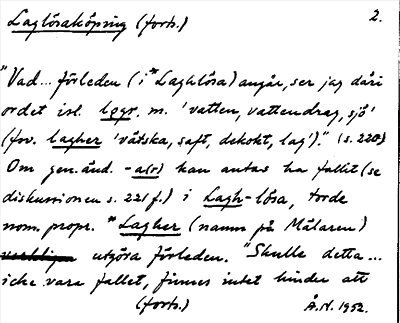 Laglösaköping (forts.) 2.
"Vad... förleden (i *Laghlösa) angår, ser jag däri
ordet isl. lǫgr. m. 'vatten, vattendrag, sjö'
(fsv. lagher 'vätska, saft, dekokt, lag')." (s. 220)
Om gen.änd. -a(r) kan antas ha fallit (se
diskussionen s. 221 f.) i Lagh-lösa, torde
nom. propr. *Lagher (namn på Mälaren)
utgöra förleden. "Skulle detta...
icke vara fallet, finnes intet hinder att
(forts.) Å.N. 1952.